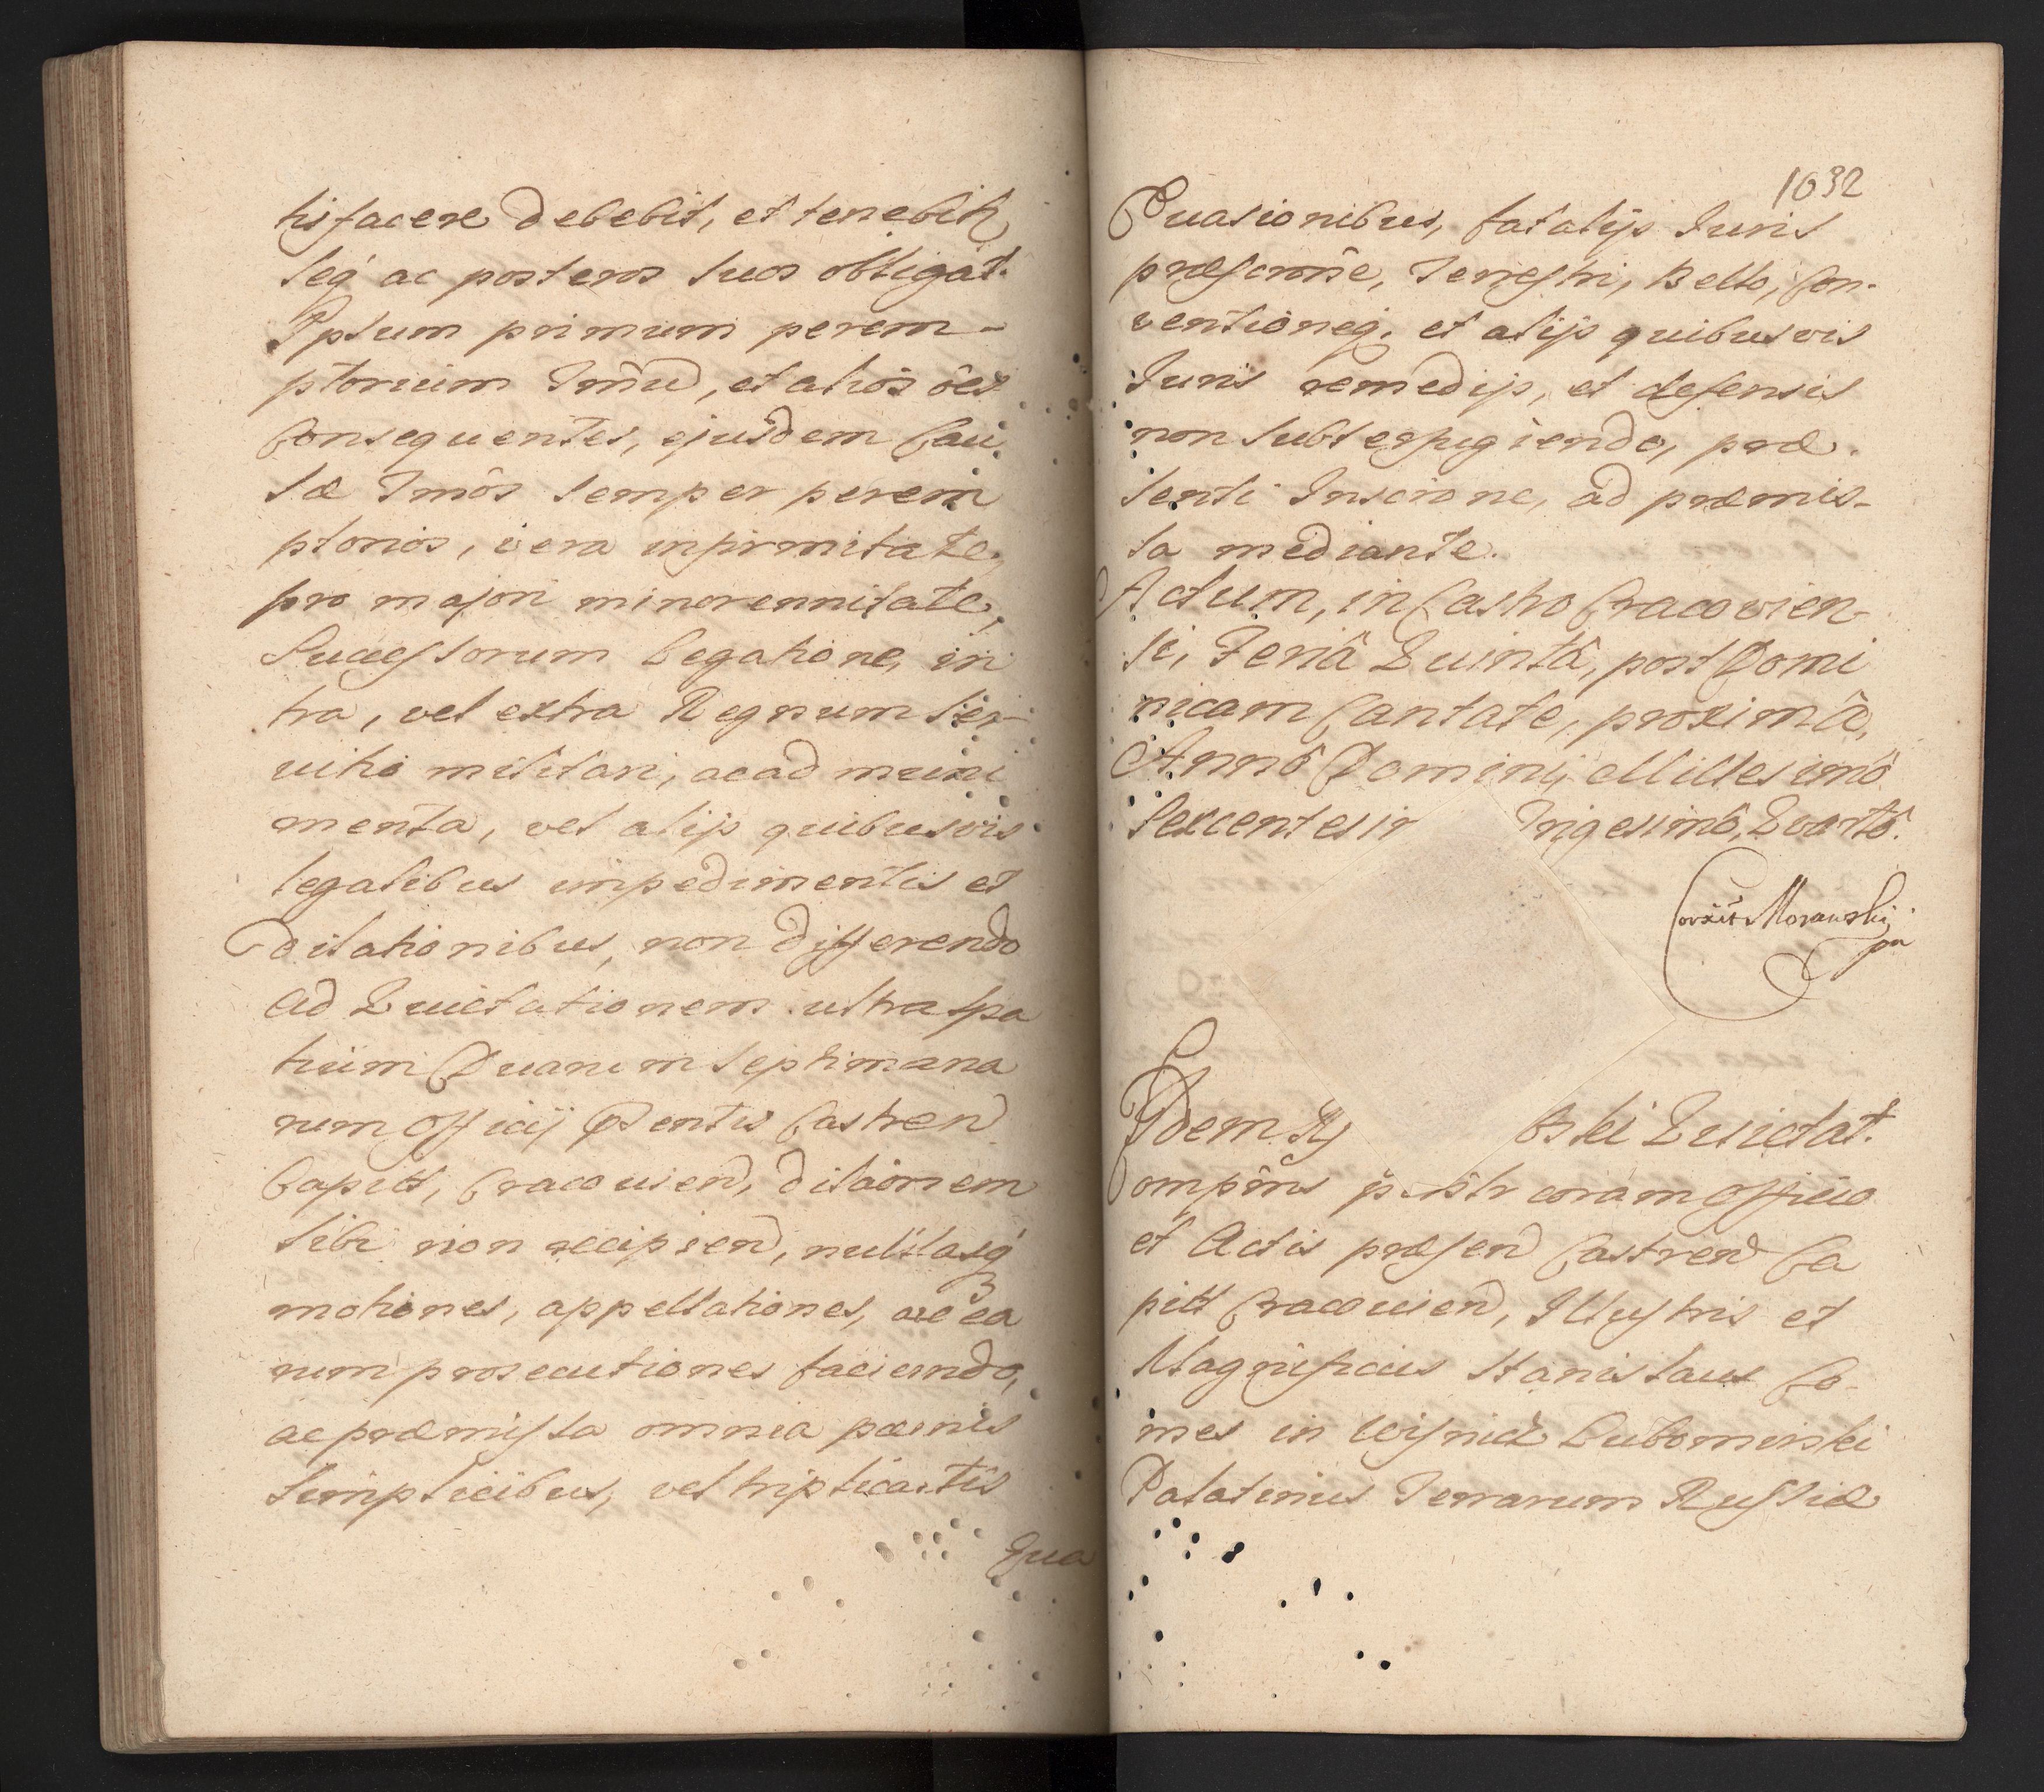 tisfacere debebit, et tenebit
seq́ ac posteros suos obligat.
Iptum primum perem-
ptorium Imũd, et alios ões
Consequentes, ejusdem Cau
sæ Imôs semper perem
ptorios, vera infirmitate,
pro majori minorennitate,
Successorum legatione, in
tra, vel extra Regnum ser-
vitio militari, ac ad muni
menta, vel alijs quibusvis
legalibus impedimentis et
dilationibus, non differendo
ad Quietationem ultra spa
tium Duarum septimana
rum Officij Psentis Castren
Capitt, Cracovien, dilãonem
sibi non recipien, nullasq́
motiones, appellationes, ac ea
rum prosecutiones faciendo,
ac præmissa omnia pænis
simplicibus, vel triplicatis
Qua
1032
Evasionibus, fatalijs Juris
præscrõne, Terrestri, Bello, Con-
ventioneq, et alijs quibusvis
Juris remedijs, et defensis
non subterfugiendo, præ.
senti Inscrõne, ad præmis-
sa mediante.
Actum, in Castro Cracovien-
si, Feriâ Quintâ, post Domi
nicam Cantate, proximâ,
Annô Dominij Millesimô
Sexcentesi Trigesimô, Quartô.
Corxit Morawski
pa
Idem bski Quietat.
Compñs psñlr coram Officio
et Actis præsen Castren Ca
pitt Cracovien, Illustris et
Magnificus Stanislaus Co-
mes in Wisnicz Lubomirski
Palatinus Terrarum Russiæ